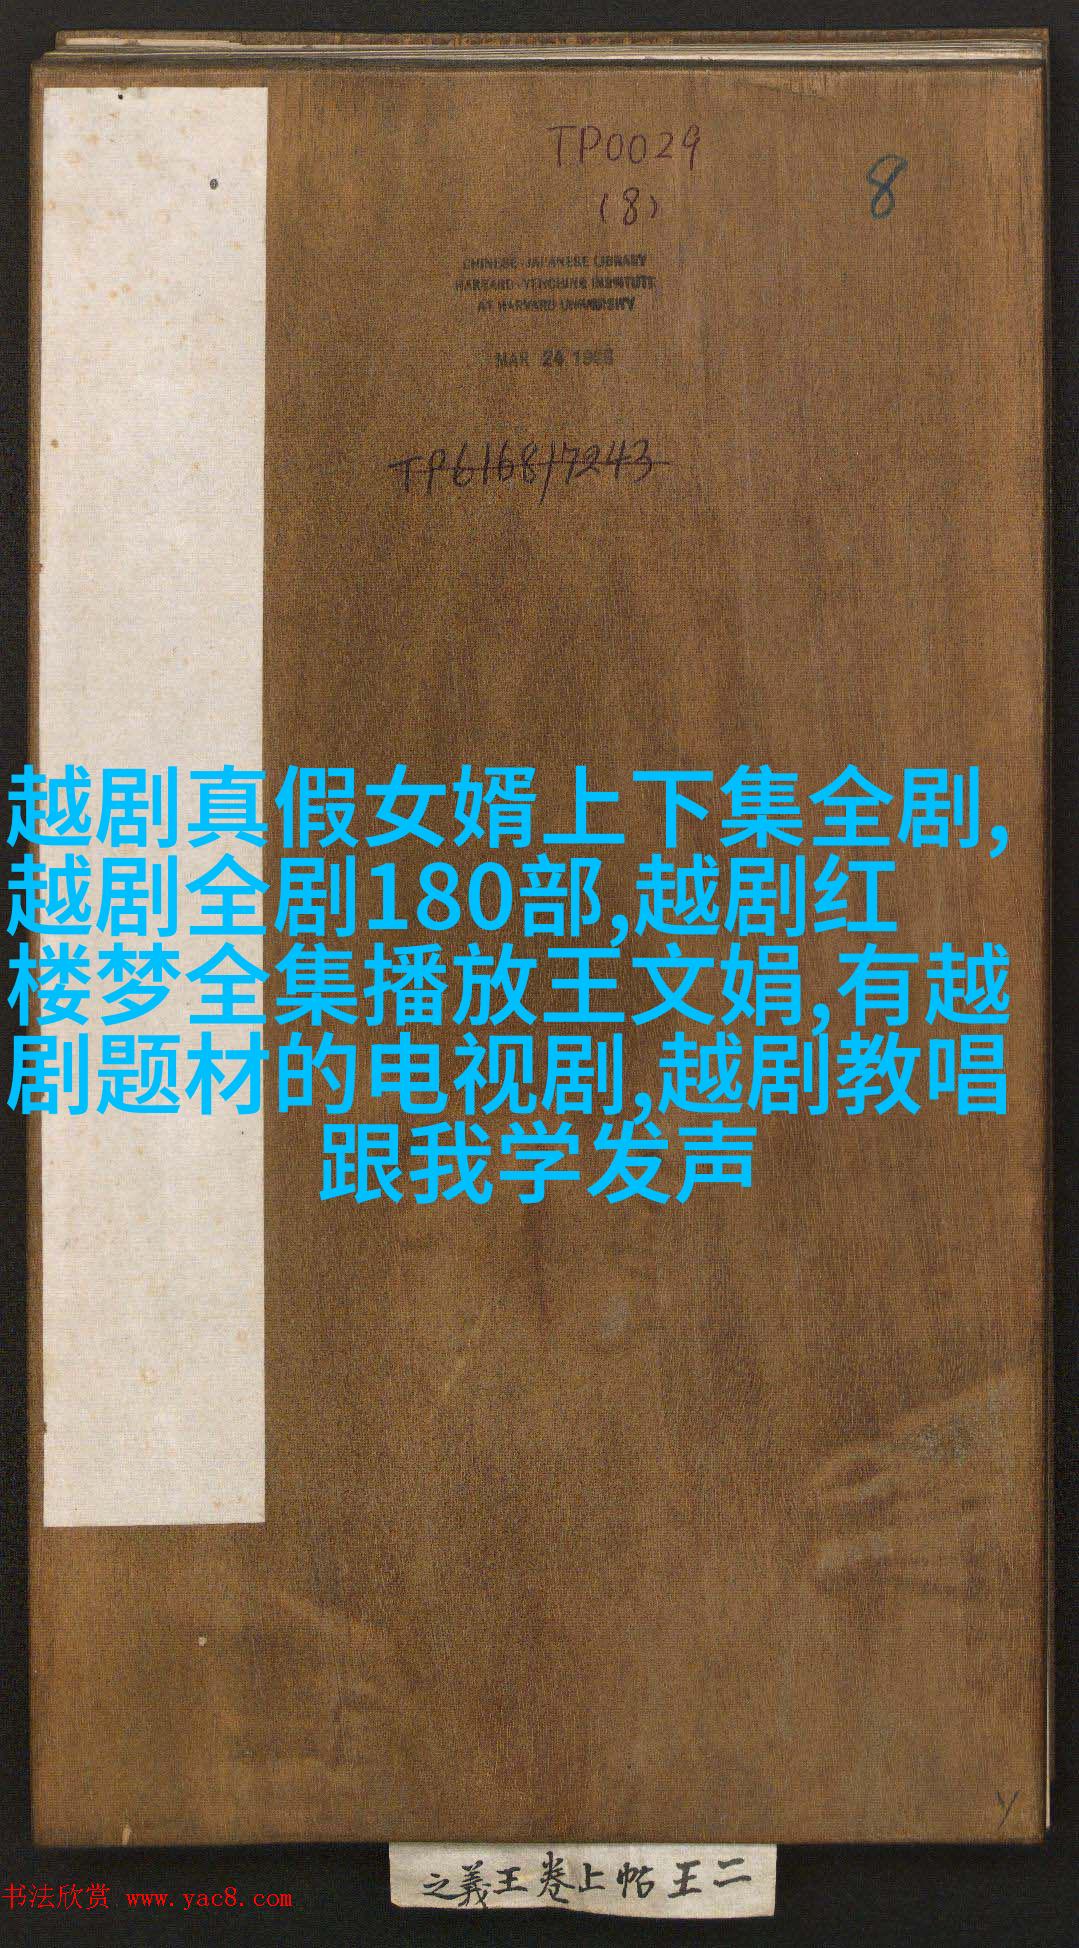 TP0029
(8)
8
CHINESE-JAPANESE LIBRARY
HARVARD-YENCHING INSTITUTE
AT HARVARD UNIVERSITY
MAR 24 19
TP6168/7243
越剧真假女婿上下集全剧,
越剧全剧180部,越剧红
楼梦全集播放王文娟,有越
剧题材的电视剧,越剧教唱
跟我学发声
y
二王帖上卷王羲之
书法欣赏 www.yac8.com